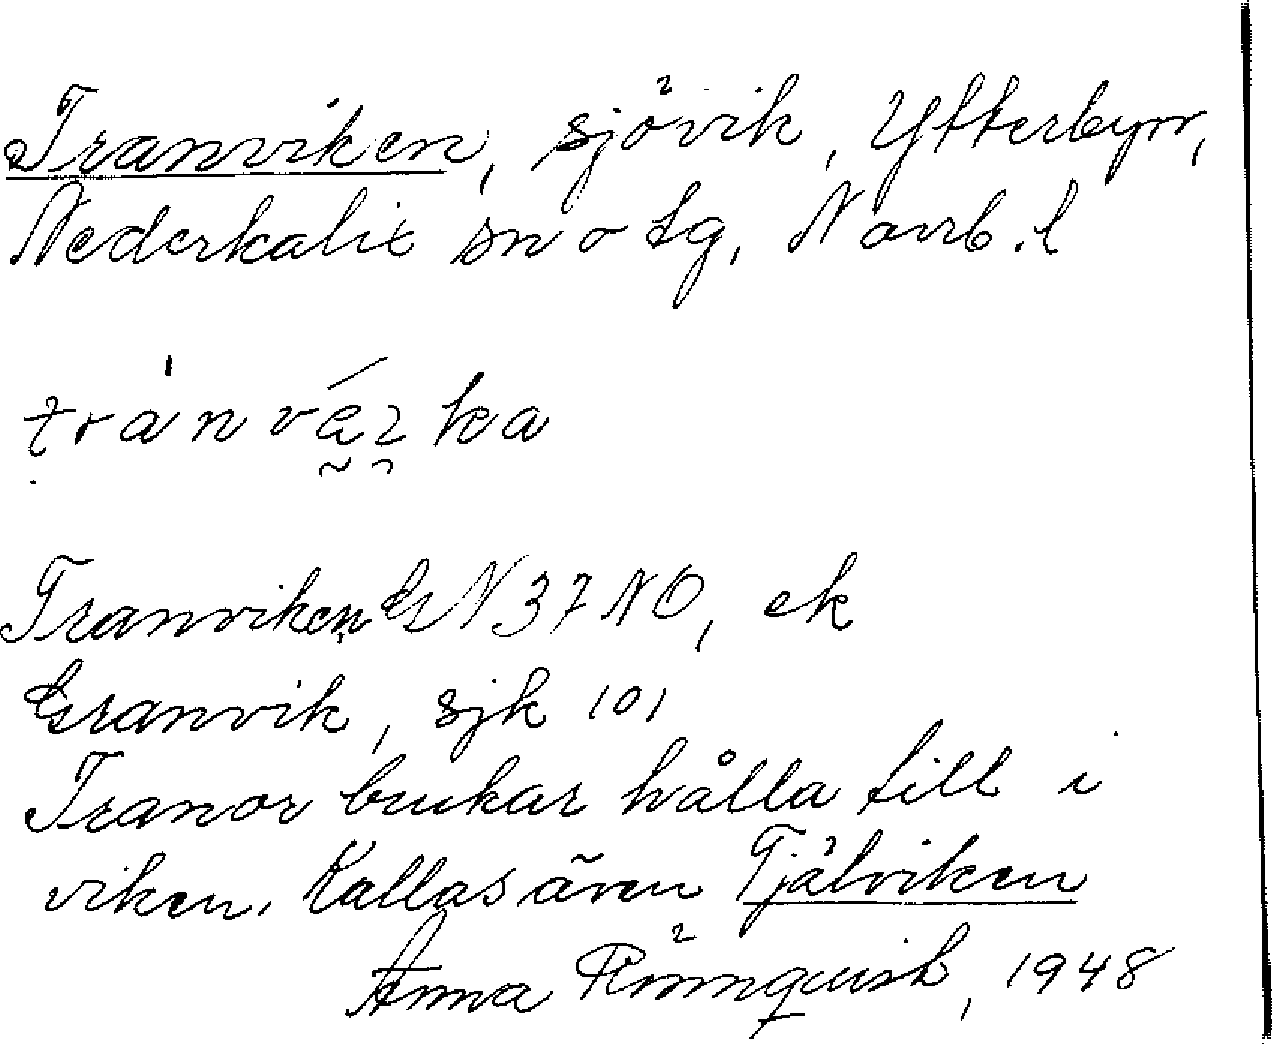 Tranviken, sjövik, Ytterbyn,
Nederkalix sn o tg, Norrb. l
Tranviken GN 37 NO, ek
Granvik, sjk 101
Tranor brukar hålla till i
viken. Kallas även Tjälviken
Anna Rönnquist, 1948